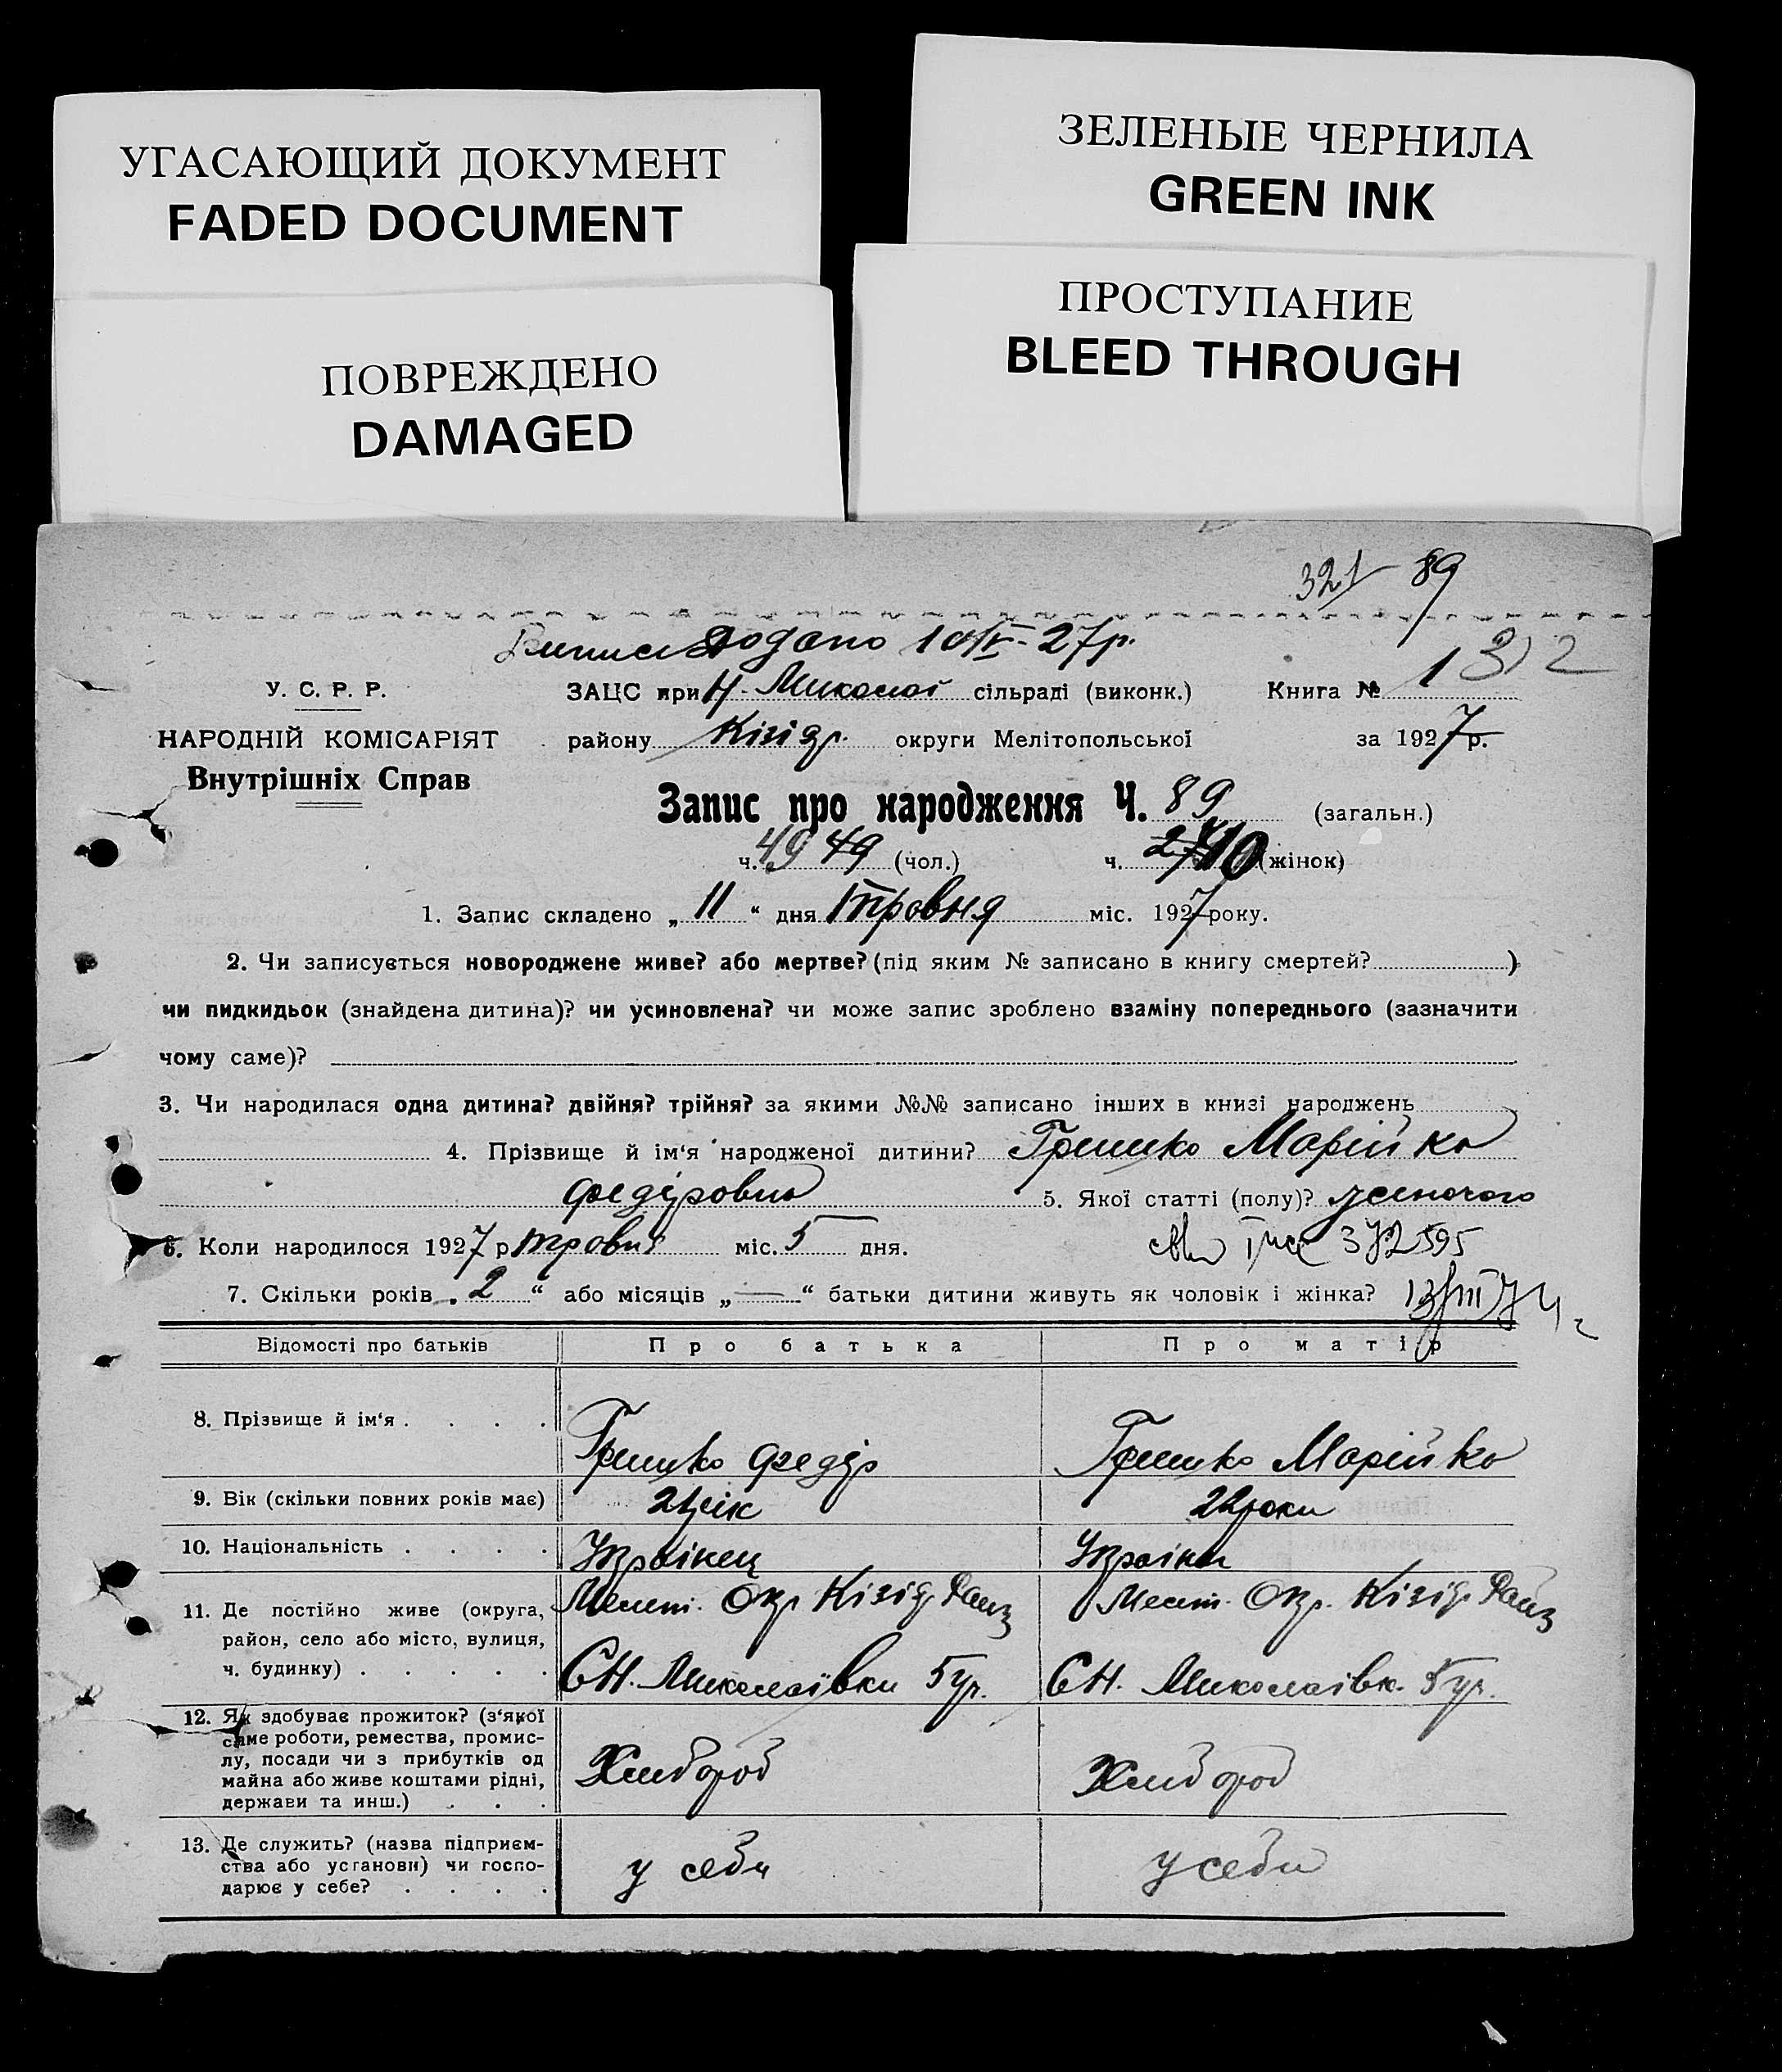 УГАСАЮЩИЙ ДОКУМЕНТ
FADED DOCUMENT
ЗЕЛЕНЫЕ ЧЕРНИЛА
GREEN INK
ПОВРЕЖДЕНО
DAMAGED
ПРОСТУПАНИЕ
BLEED THROUGH
321 89
додано 10/V-27р.
У. С. Р. Р.
ЗАЦС при Н-Микола сільраді (виконк.) Книга № 1
НАРОДНІЙ КОМІСАРІЯТ
району Кізіяр. округи Мелітопольської за 1927 р.
Внутрішніх Справ
Запис про народження Ч. 89 (загальн.)
ч. 49 49 (чол.) ч. 40 (жінок)
1. Запис складено „ 11 “ дня травня міс. 1927 року.
2. Чи записується новороджене живе? або мертве? (під яким № записано в книгу смертей? )
чи пидкидьок (знайдена дитина)? чи усиновлена? чи може запис зроблено взаміну попереднього (зазначити
чому саме)?
3. Чи народилася одна дитина? двійня? трійня? за якими №№ записано інших в книзі народжень
4. Прізвище й ім‘я народженої дитини? Гришко Марійка
Федіровна 5. Якої статті (полу)? жиночого
6. Коли народилося 1927 р травня міс. 5 дня.
372595
7. Скільки років „ 2 “ або місяців „ — “ батьки дитини живуть як чоловік і жінка? 13/III 74
Відомості про батьків Про батька Про матір
8. Прізвище й ім‘я . . . . Гришко Федір Гришко Марійка
9. Вік (скільки повних років має) 21 рік 22 роки
10. Національність . . . . Українец Українка
11. Де постійно живе (округа, Мелит. Окр Кізіяр. Мелит. Окр. Кізіяр.
район, село або місто, вулиця,
ч. будинку) . . . . . Н. Миколаївки 5 ур. Н. Миколаівк. 5 ур.
12. Як здобуває прожиток? (з‘якої
саме роботи, ремества, промис-
лу, посади чи з прибутків од Хлибороб Хлибороб
майна або живе коштами рідні,
держави та инш.) . . .
13. Де служить? (назва підприєм-
ства або установи) чи госпо- у себи у себи
дарює у себе? . . . .